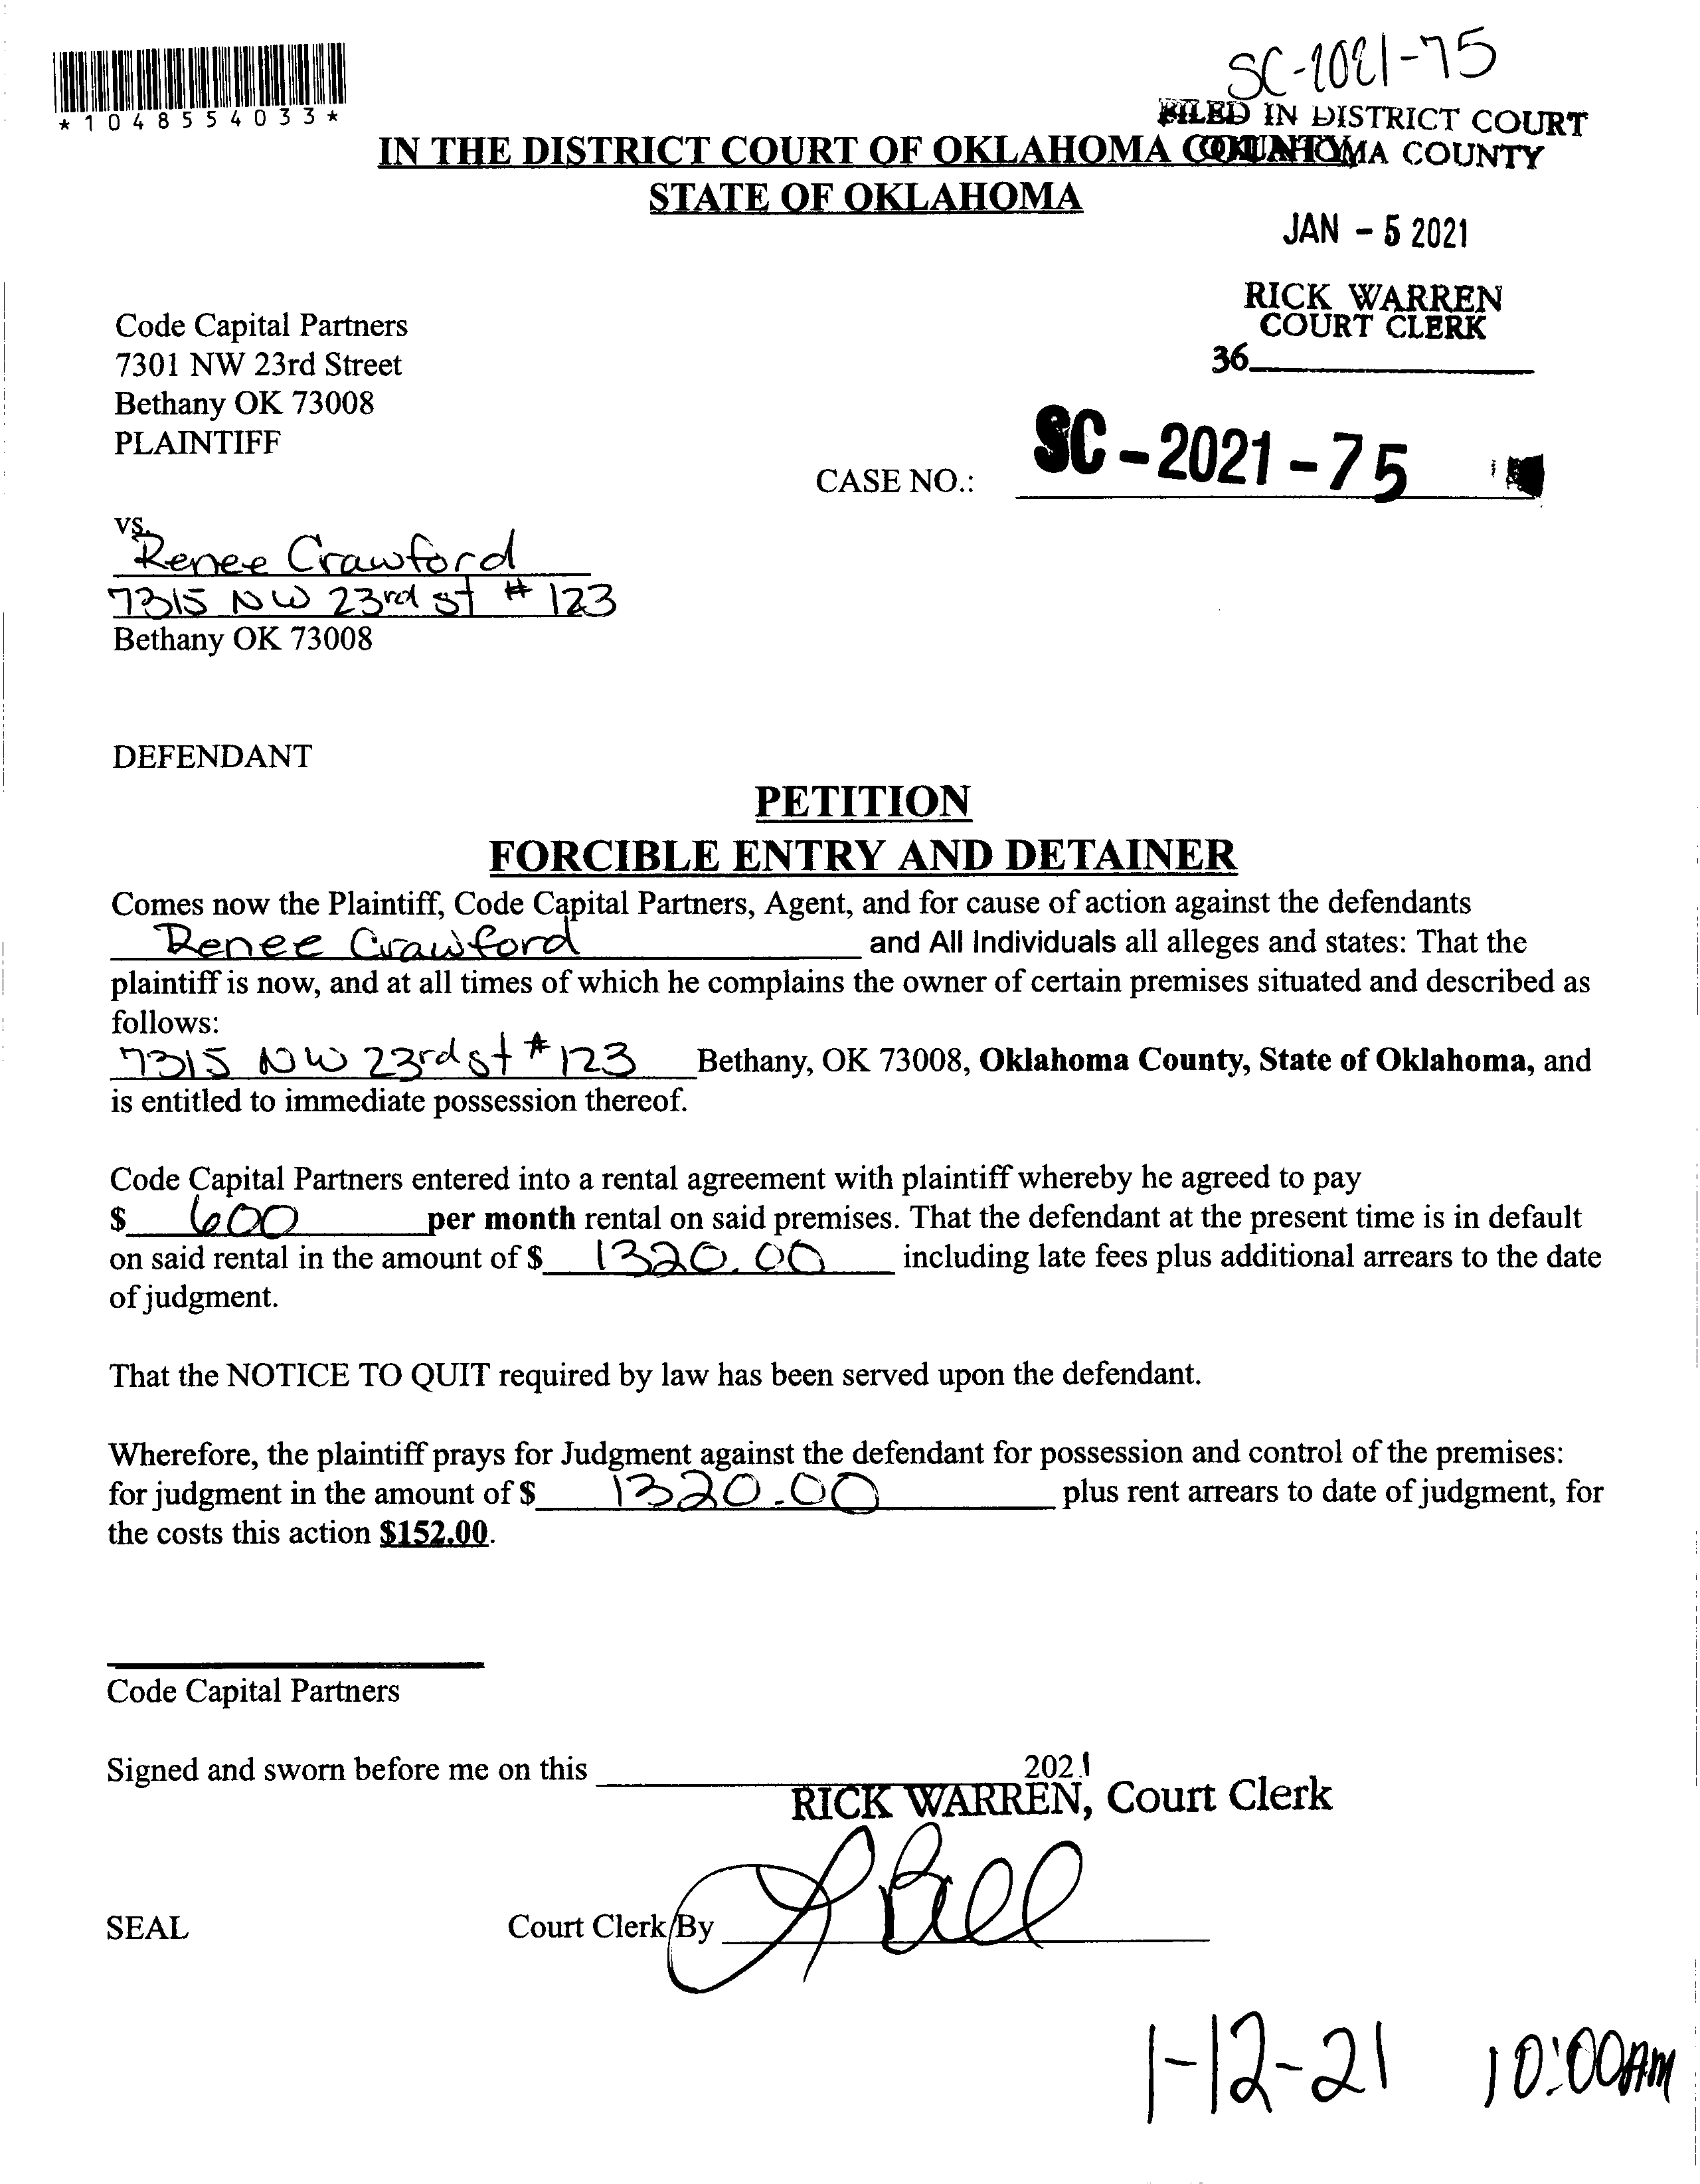 SC-2021-75
*1048554033*
FILED IN DISTRICT COURT
OKLAHOMA COUNTY
IN THE DISTRICT COURT OF OKLAHOMA COUNTY
STATE OF OKLAHOMA
JAN - 5 2021
RICK WARREN
COURT CLERK
36
Code Capital Partners
7301 NW 23rd Street
Bethany OK 73008
PLAINTIFF
CASE NO.: SC-2021-75
vs.
Renee Crawford
7315 NW 23rd st # 123
Bethany OK 73008
DEFENDANT
PETITION
FORCIBLE ENTRY AND DETAINER
Comes now the Plaintiff, Code Capital Partners, Agent, and for cause of action against the defendants
Renee Crawford and All Individuals all alleges and states: That the
plaintiff is now, and at all times of which he complains the owner of certain premises situated and described as
follows:
7315 NW 23rd st # 123 Bethany, OK 73008, Oklahoma County, State of Oklahoma, and
is entitled to immediate possession thereof.
Code Capital Partners entered into a rental agreement with plaintiff whereby he agreed to pay
$ 600 per month rental on said premises. That the defendant at the present time is in default
on said rental in the amount of $ 1320.00 including late fees plus additional arrears to the date
of judgment.
That the NOTICE TO QUIT required by law has been served upon the defendant.
Wherefore, the plaintiff prays for Judgment against the defendant for possession and control of the premises:
for judgment in the amount of $ 1320.00 plus rent arrears to date of judgment, for
the costs this action $152.00.
Code Capital Partners
Signed and sworn before me on this 2021
RICK WARREN, Court Clerk
SEAL Court Clerk By
1-12-21 10:00AM